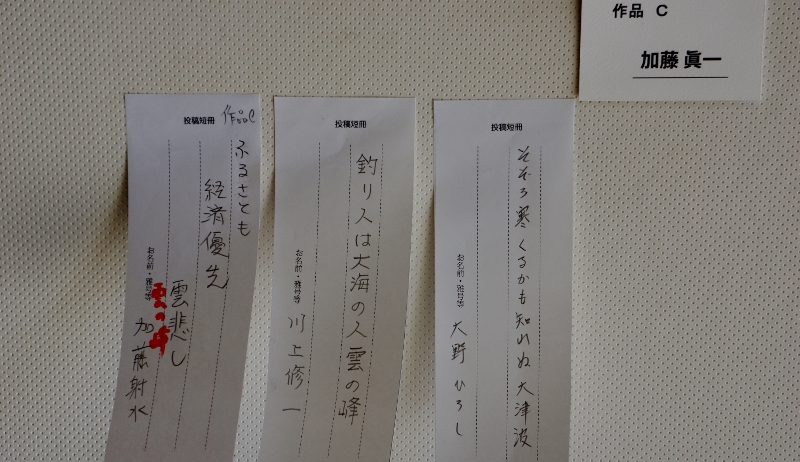 作品 C
加藤 眞一
投稿短冊
そぞろ寒くるかも知れぬ大津波
お名前・雅号等
大野ひろし
投稿短冊
釣り人は大海の人雲の峰
お名前・雅号等
川上修一
投稿短冊
作品C
ふるさとも
経済優先
雲悲し
雲の峰
お名前・雅号等
加藤射水